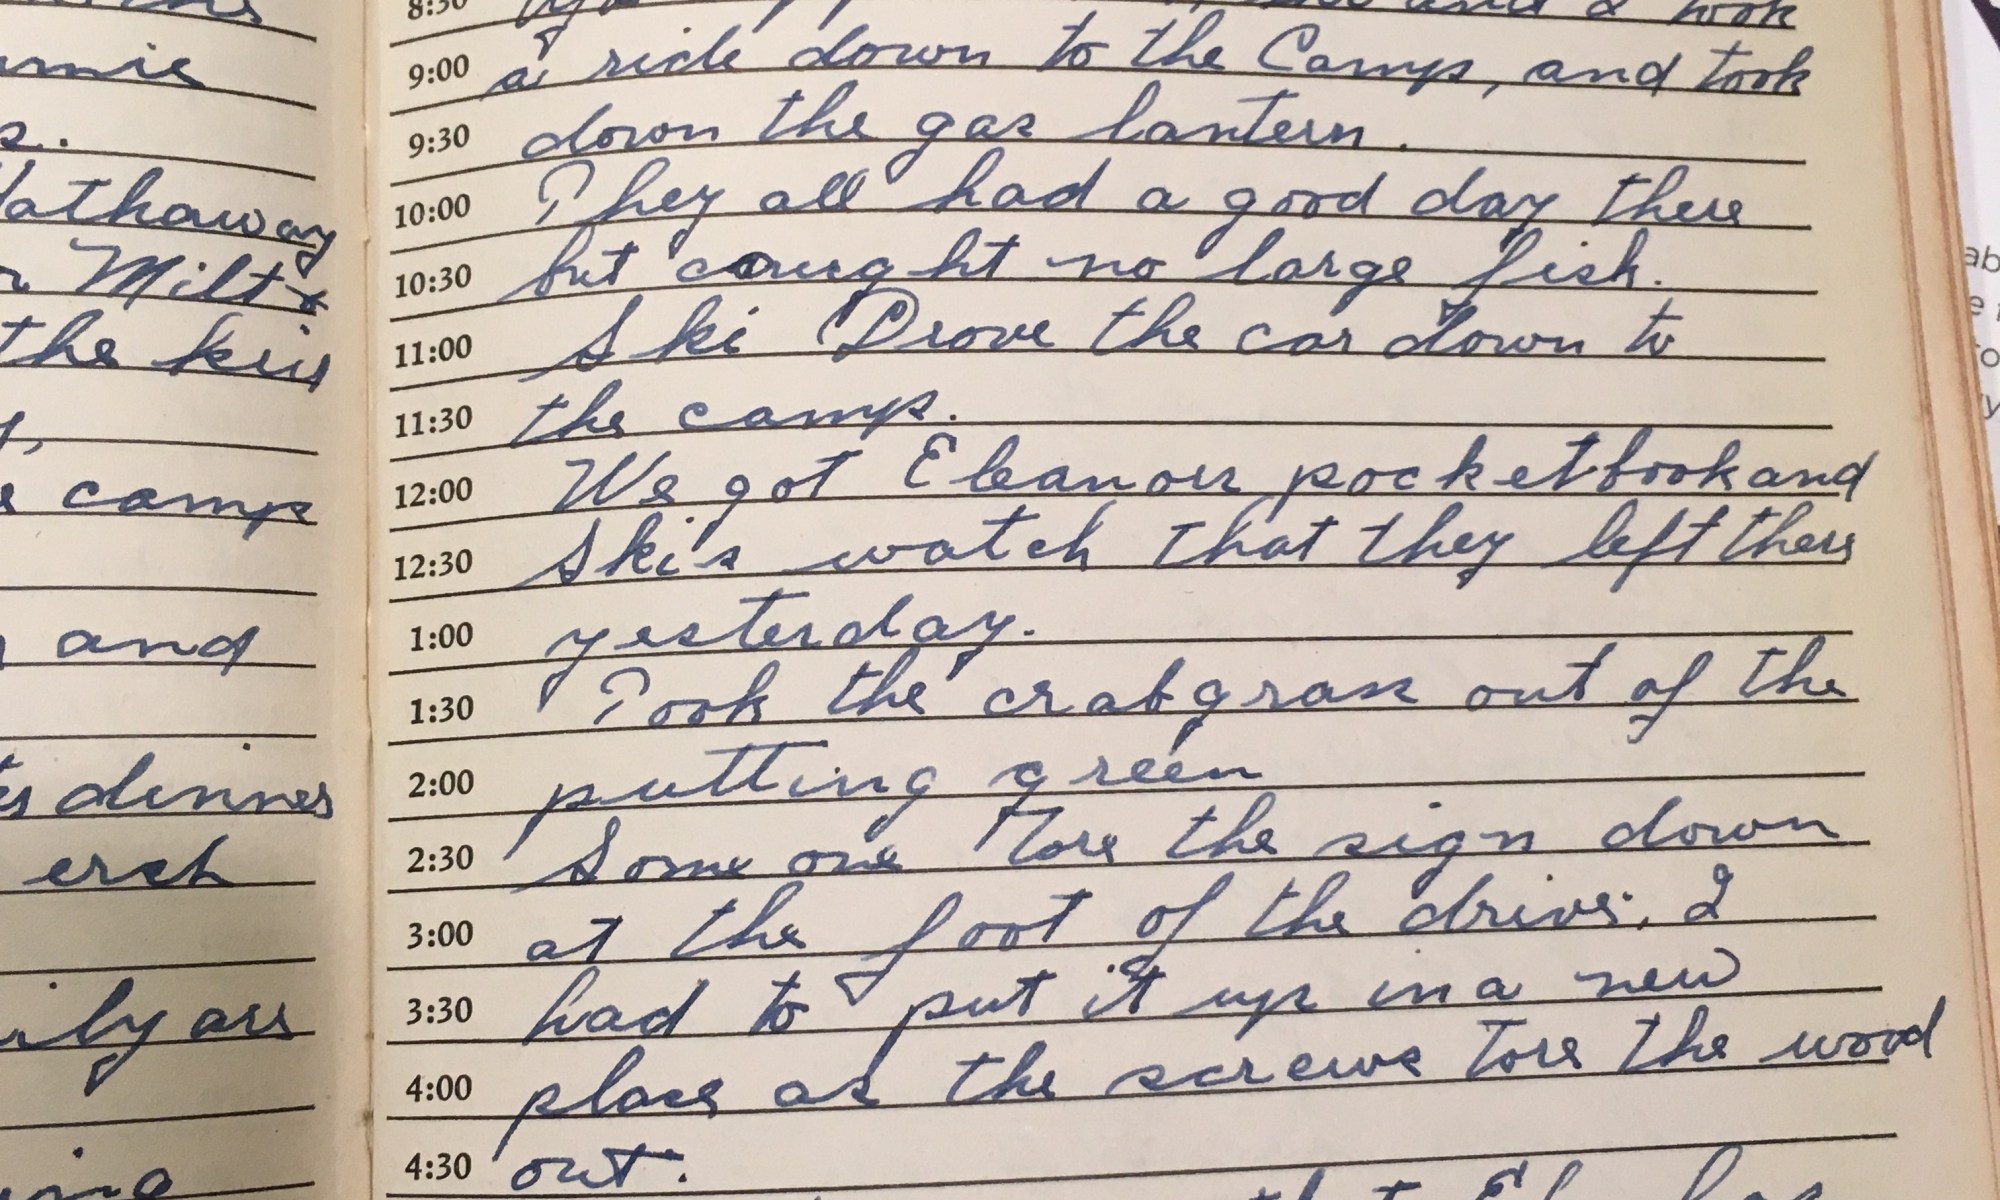 smie
s.
Hathaway
Milt &
the kids
camp
and
dinner
erch
ily are
8:30 and I took
9:00 a ride down to the Camp, and took
9:30 down the gas lantern.
10:00 They all had a good day there
10:30 but caught no large fish.
11:00 Ski Drove the car down to
11:30 the camp.
12:00 We got Eleanors pocketbook and
12:30 Ski's watch that they left there
1:00 yesterday.
1:30 Took the crabgrass out of the
2:00 putting green
2:30 Some one Tore the sign down
3:00 at the foot of the drive. I
3:30 had to put it up in a new
4:00 place as the screws tore the wood
4:30 out.
that